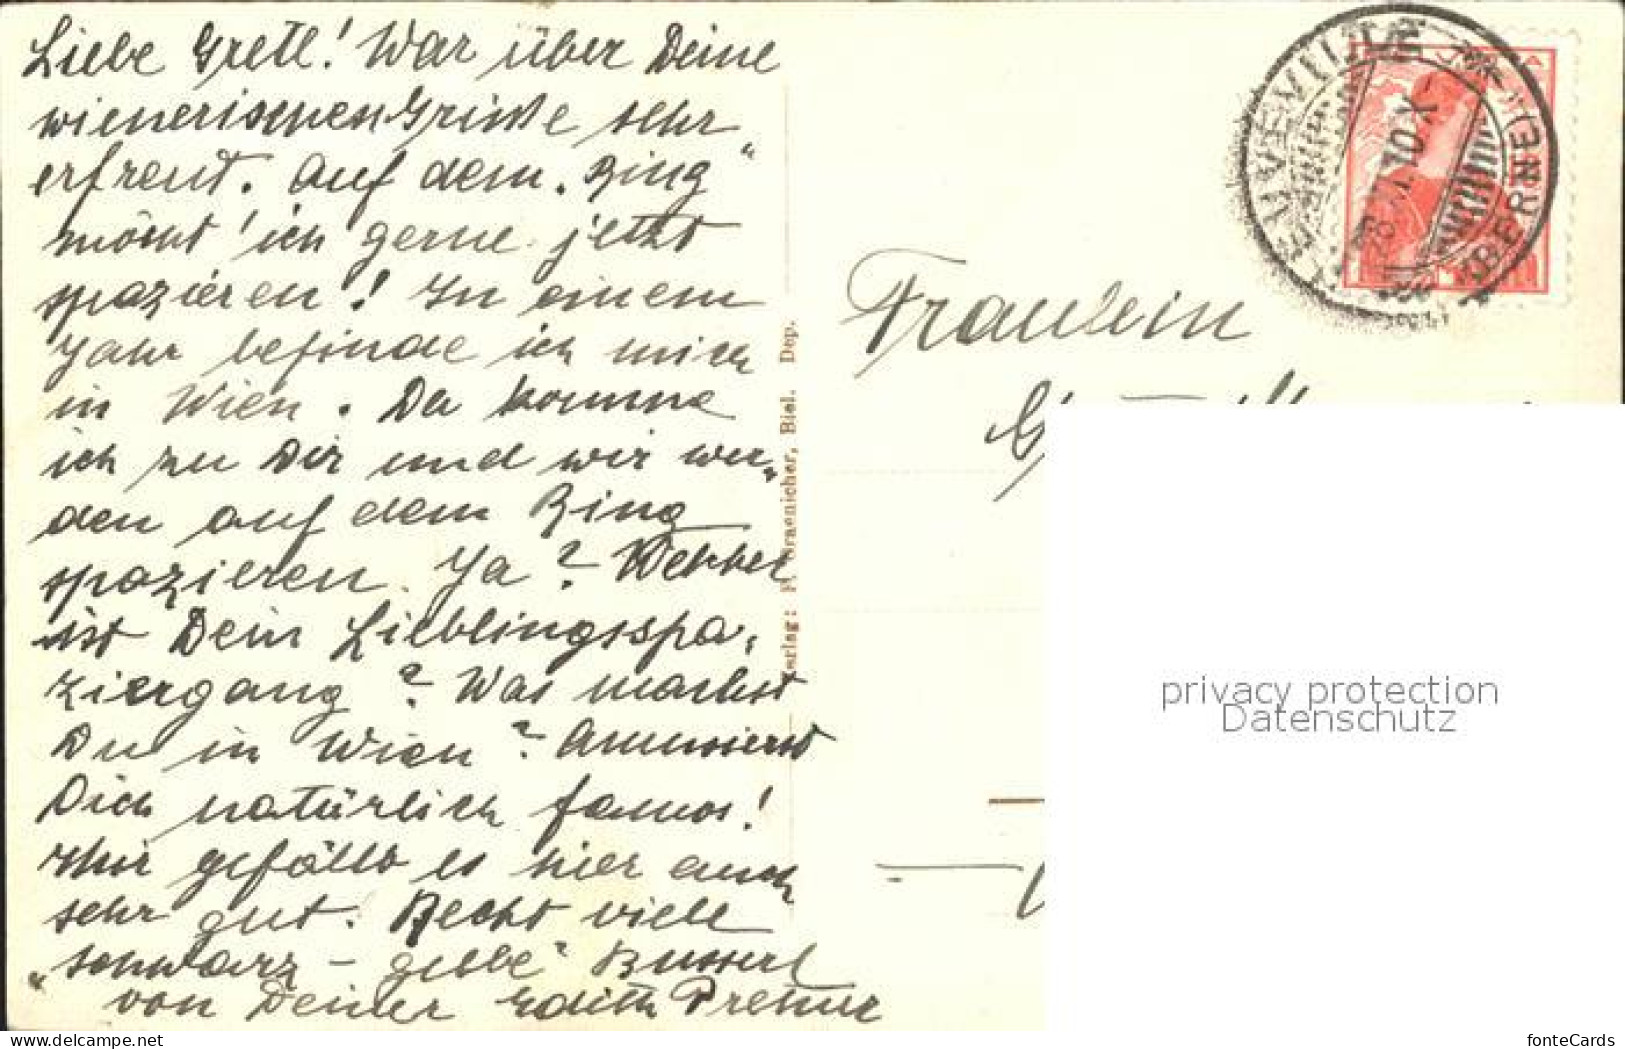 Liebe Gretl! War über Deine
wienerischen Grüsse sehr
erfreut. Auf dem „Ring"
möcht' ich gerne jetzt
spazieren! In einem
Jahr befinde ich mich
in Wien. Da komme
ich zu Dir und wir wer„
den auf dem Ring
spazieren. Ja? Welcher
ist Dein Lieblingsspa„
ziergang? Was machst
Du in Wien? Amusierst
Dich natürlich famos!
Mir gefällt es hier auch
sehr gut. Recht viele
„schwarz-gelbe" Busserl
von Deiner Edith
Verlag: F. Graenicher, Biel. Dep.
NEUVEVILLE
(BERNE)
10.X
Fräulein
privacy protection
Datenschutz
www.ansichtskartenversand.com
fonteCards